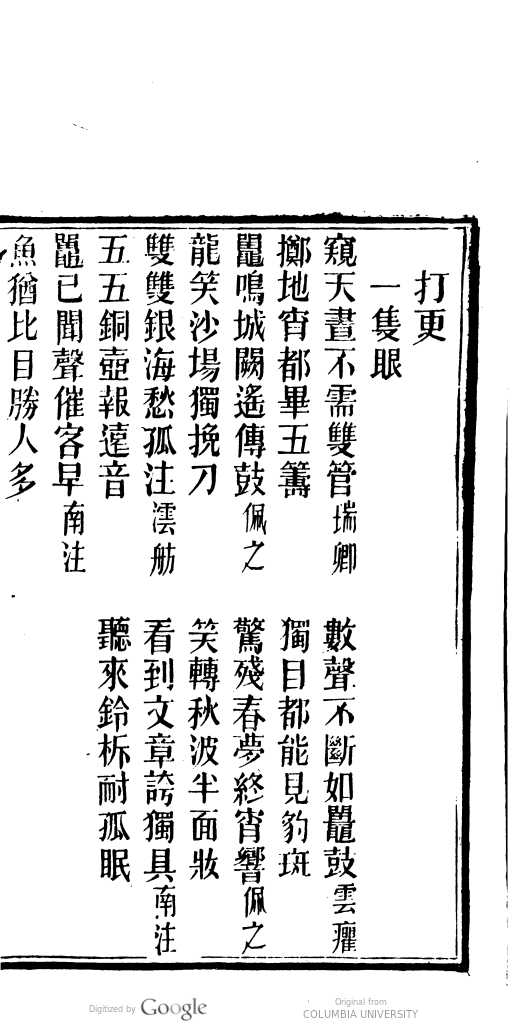 打更
一隻眼
窺天晝不需雙管瑞卿
數聲不斷如鼉鼓雲癯
擲地宵都畢五籌
獨目都能見豹斑
鼉鳴城闕遙傳鼓佩之
驚殘春夢終宵響佩之
龍笑沙場獨挽刀
笑轉秋波半面妝
雙雙銀海愁孤注澐舫
看到文章誇獨具南注
五五銅壺報遠音
聽來鈴柝耐孤眠
鼉已聞聲催客早南注
魚猶比目勝人多
Digitized by Google
Original from
COLUMBIA UNIVERSITY